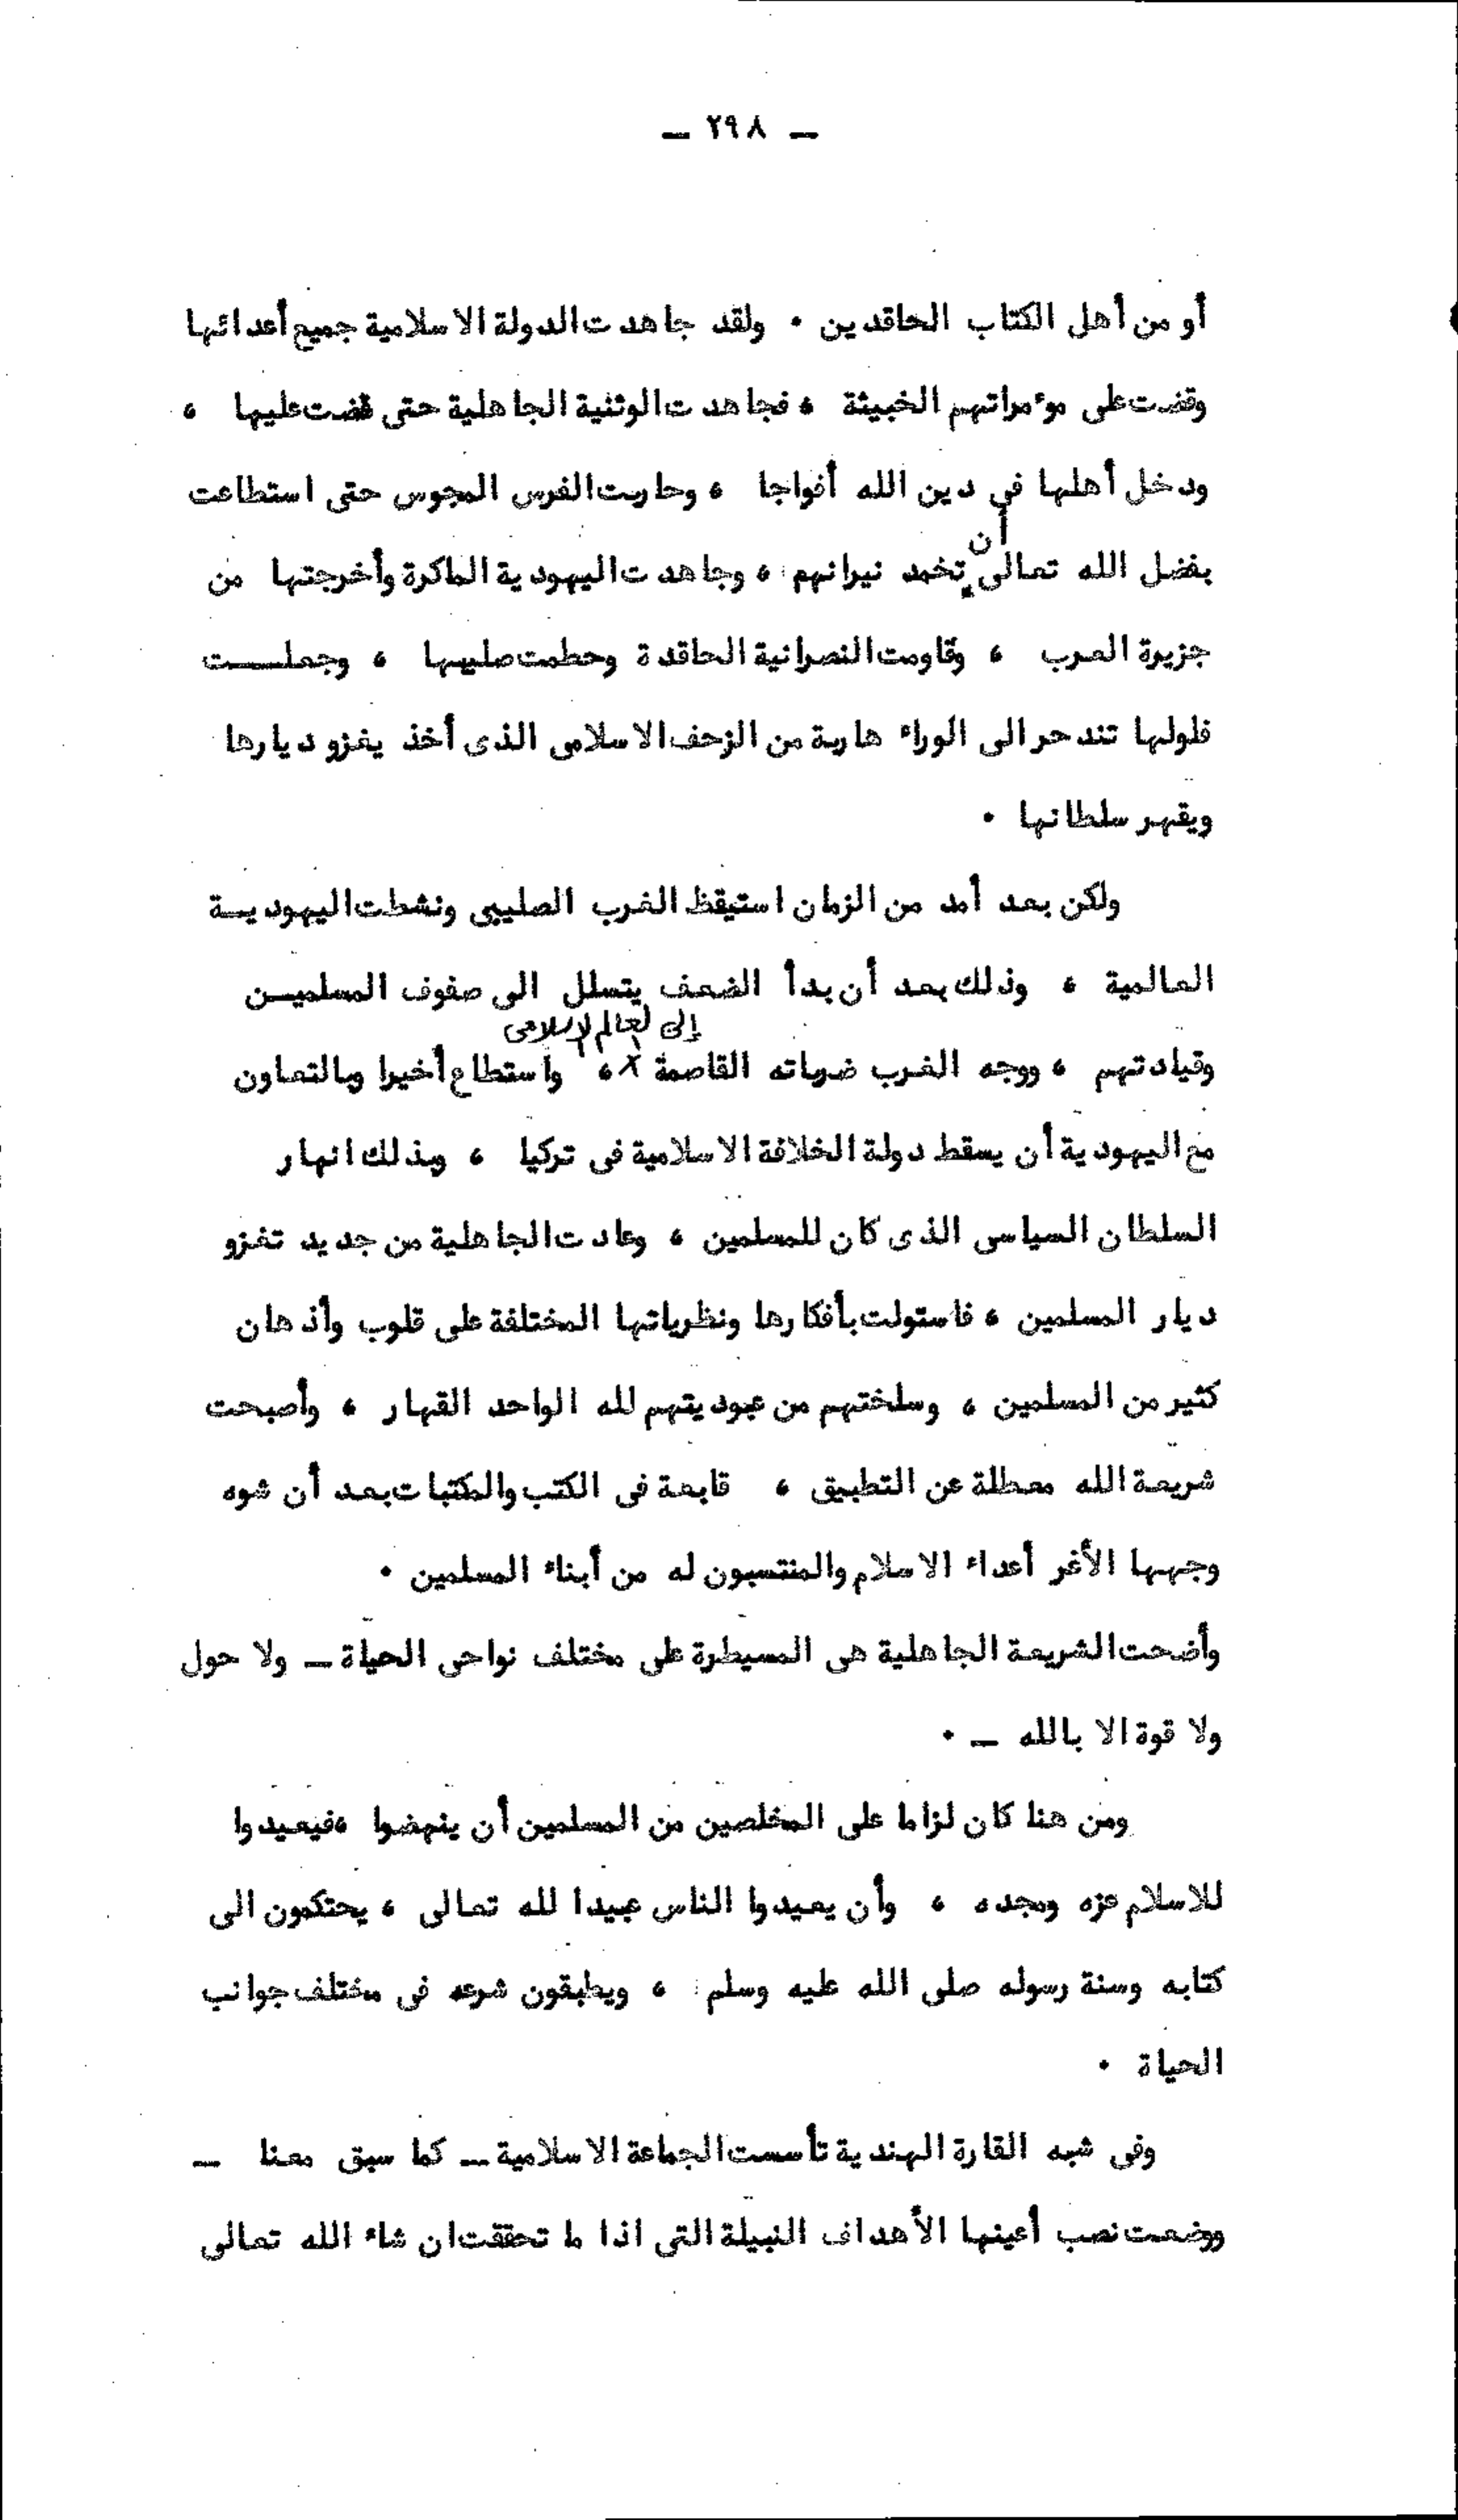 — ٢٩٨ —
أو من أهل الكتاب الحاقدين ٠ ولقد جاهدت الدولة الاسلامية جميع أعدائها
وقضت على مؤمراتهم الخبيثة ، فجاهدت الوثنية الجاهلية حتى قضت عليها ،
ودخل أهلها في دين الله أفواجا ، وحاربت الفرس المجوس حتى استطاعت
بفضل الله تعالى أن تخمد نيرانهم ، وجاهدت اليهودية الماكرة وأخرجتها من
جزيرة العرب ، وقاومت النصرانية الحاقدة وحطمت صليبها ، وجعلــــت
فلولها تندحر الى الوراء هاربة من الزحف الاسلامى الذى أخذ يغزو ديارها
ويقهر سلطانها ٠
ولكن بعد أمد من الزمان استيقظ الغرب الصليبى ونشطت اليهوديــة
العالمية ، وذلك بعد أن بدأ الضعف يتسلل الى صفوف المسلميــن
وقيادتهم ، ووجه الغرب ضرباته القاصمة إلى العالم الإسلامى ، واستطاع أخيرا وبالتعاون
مع اليهودية أن يسقط دولة الخلافة الاسلامية فى تركيا ، وبذلك انهار
السلطان السياسى الذى كان للمسلمين ، وعادت الجاهلية من جديد تغزو
ديار المسلمين ، فاستولت بأفكارها ونظرياتها المختلفة على قلوب وأذهان
كثير من المسلمين ، وسلختهم من عبوديتهم لله الواحد القهار ، وأصبحت
شريعة الله معطلة عن التطبيق ، قابعة فى الكتب والمكتبات بعد أن شوه
وجهها الأغر أعداء الاسلام والمنتسبون له من أبناء المسلمين ٠
وأضحت الشريعة الجاهلية هى المسيطرة على مختلف نواحى الحياة — ولا حول
ولا قوة الا بالله — ٠
ومن هنا كان لزاما على المخلصين من المسلمين أن ينهضوا ،فيعيدوا
للاسلام عزه ومجده ، وأن يعيدوا الناس عبيدا لله تعالى ، يحتكمون الى
كتابه وسنة رسوله صلى الله عليه وسلم ، ويطبقون شرعه فى مختلف جوانب
الحياة ٠
وفى شبه القارة الهندية تأسست الجماعة الاسلامية — كما سبق معنا —
ووضعت نصب أعينها الأهداف النبيلة التى اذا ما تحققت ان شاء الله تعالى